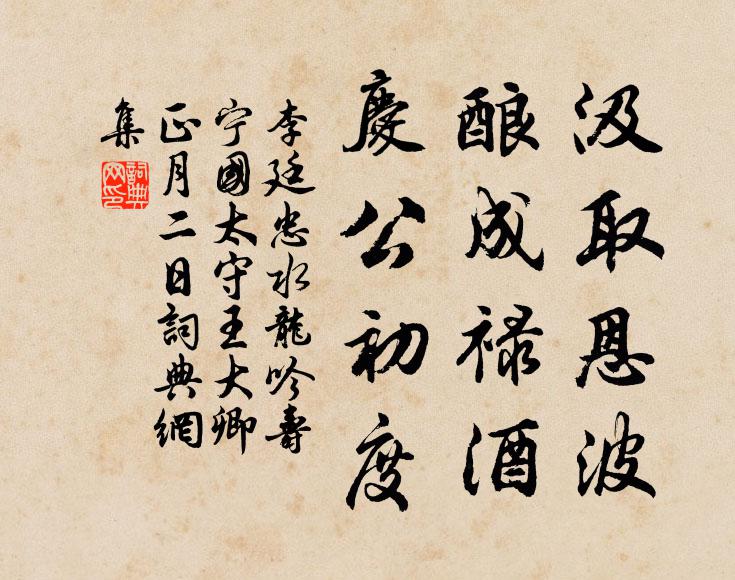 汲取恩波
酿成禄酒
慶公初度
李廷忠水龍吟壽
宁國太守王大卿
正月二日詞典網
集
詞典
网印